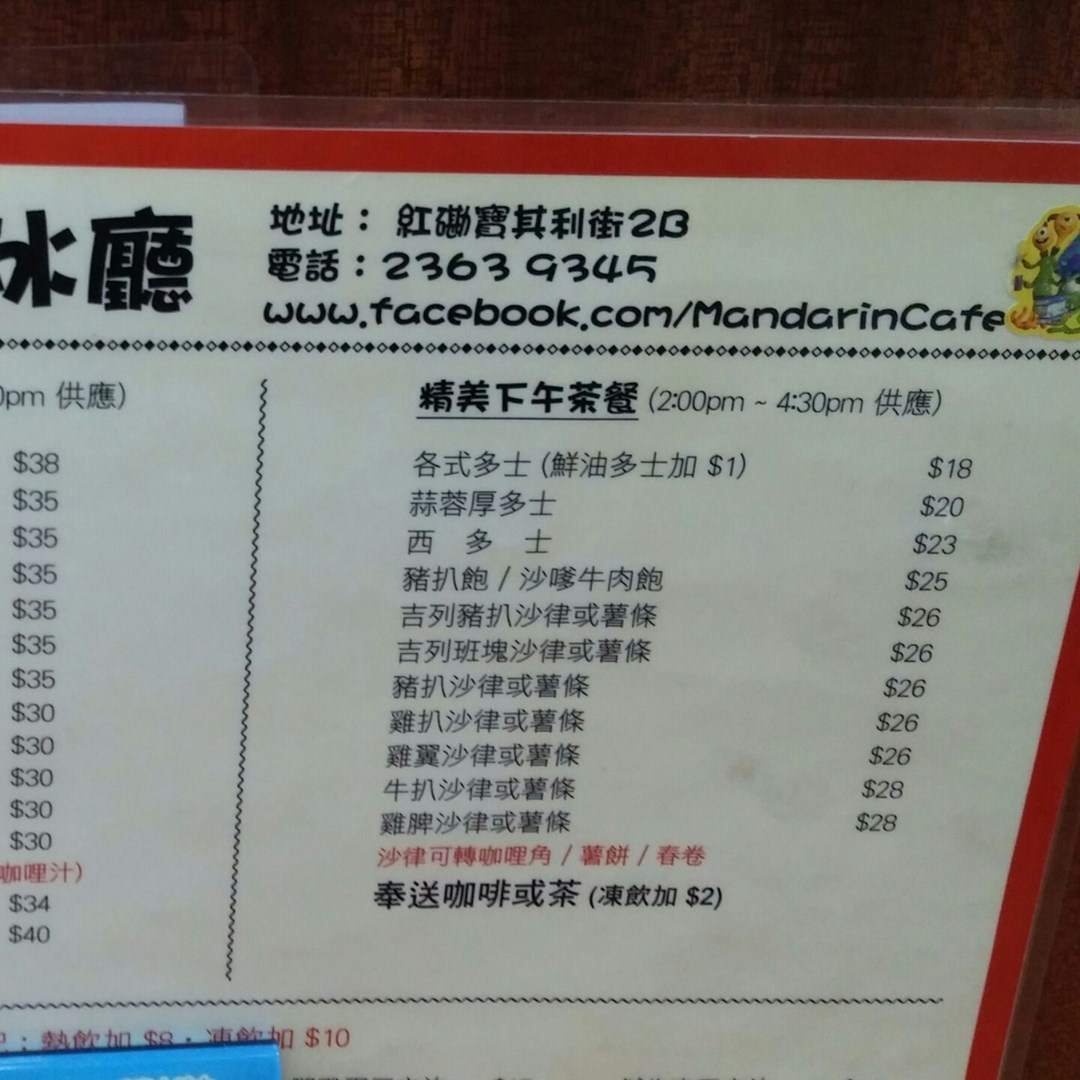 冰廳
地址：紅磡寶其利街2B
電話：2363 9345
www.facebook.com/MandarinCafe
0pm 供應)
$38
$35
$35
$35
$35
$35
$35
$30
$30
$30
$30
$30
咖哩汁)
$34
$40
精美下午茶餐 (2:00pm ~ 4:30pm 供應)
各式多士 (鮮油多士加 $1) $18
蒜蓉厚多士 $20
西 多 士 $23
豬扒飽 / 沙嗲牛肉飽 $25
吉列豬扒沙律或薯條 $26
吉列班塊沙律或薯條 $26
豬扒沙律或薯條 $26
雞扒沙律或薯條 $26
雞翼沙律或薯條 $26
牛扒沙律或薯條 $28
雞脾沙律或薯條 $28
沙律可轉咖哩角 / 薯餅 / 春卷
奉送咖啡或茶 (凍飲加 $2)
：熱飲加 $8，凍飲加 $10